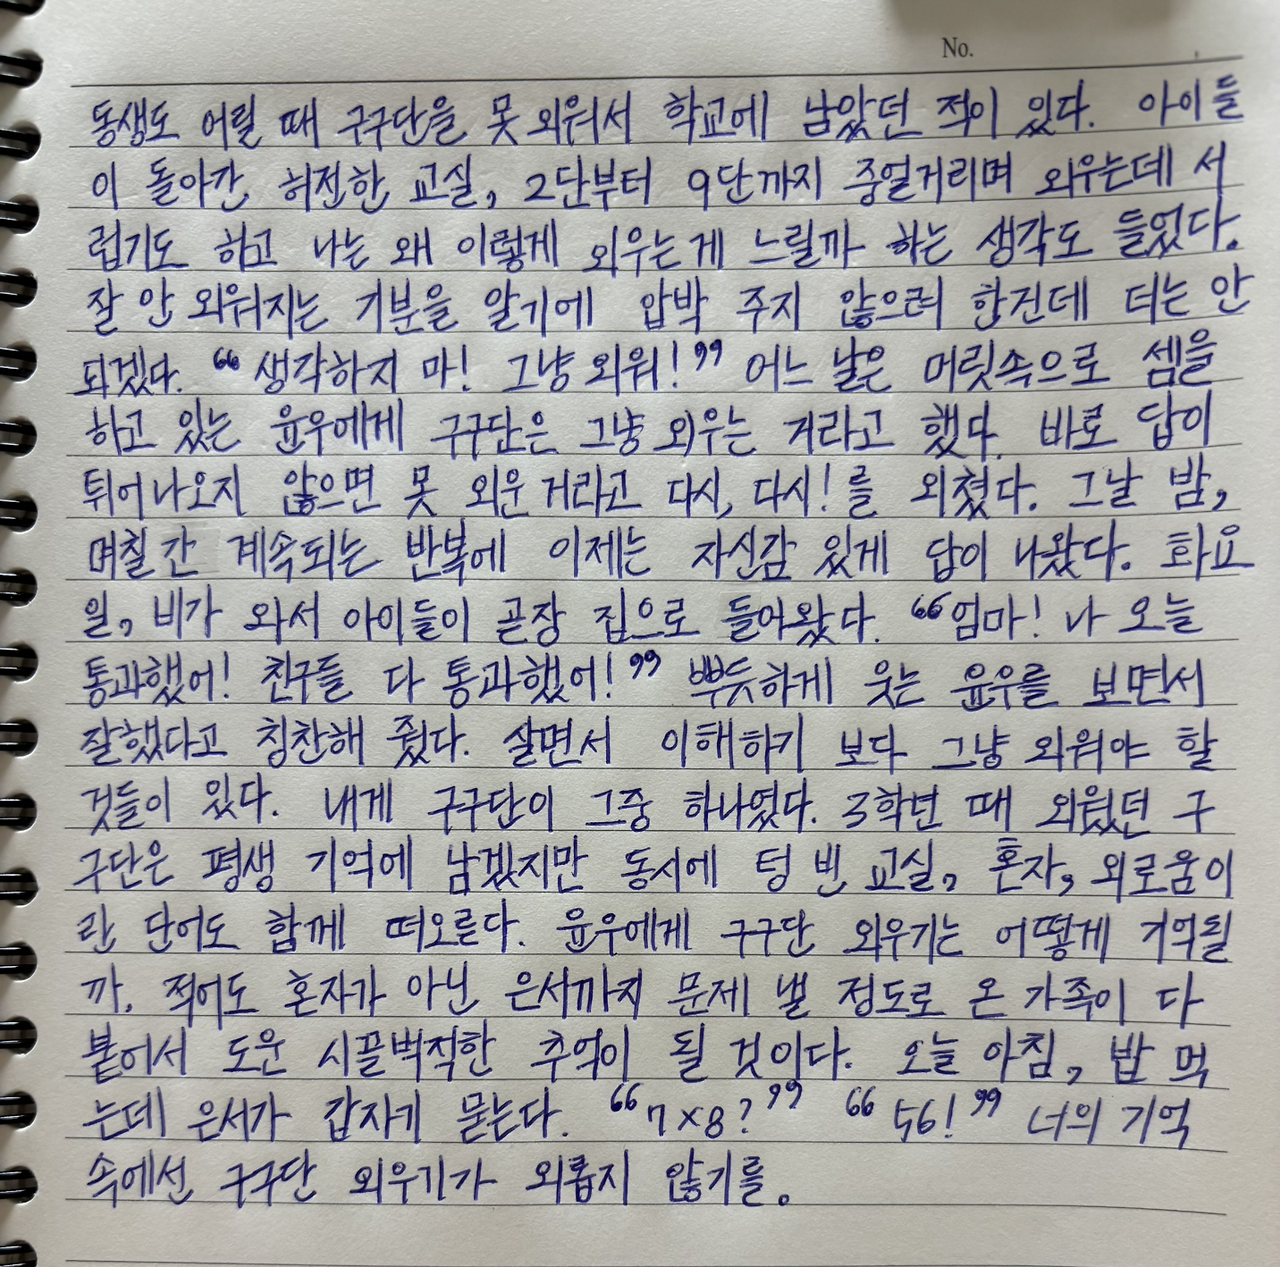 No.
동생도 어릴 때 구구단을 못 외워서 학교에 남았던 적이 있다. 아이들
이 돌아간, 허전한 교실, 2단부터 9단까지 중얼거리며 외우는데 서
럽기도 하고 나는 왜 이렇게 외우는게 느릴까 하는 생각도 들었다.
잘 안 외워지는 기분을 알기에 압박 주지 않으려 한건데 더는 안
되겠다. “생각하지 마! 그냥 외워!” 어느 날은 머릿속으로 셈을
하고 있는 윤우에게 구구단은 그냥 외우는 거라고 했다. 바로 답이
튀어나오지 않으면 못 외운 거라고 다시, 다시!를 외쳤다. 그날 밤,
며칠간 계속되는 반복에 이제는 자신감 있게 답이 나왔다. 화요
일, 비가 와서 아이들이 곧장 집으로 들어왔다. “엄마! 나 오늘
통과했어! 친구들 다 통과했어!” 뿌듯하게 웃는 윤우를 보면서
잘했다고 칭찬해 줬다. 살면서 이해하기 보다 그냥 외워야 할
것들이 있다. 내게 구구단이 그중 하나였다. 3학년 때 외웠던 구
구단은 평생 기억에 남겠지만 동시에 텅 빈 교실, 혼자, 외로움이
란 단어도 함께 떠오른다. 윤우에게 구구단 외우기는 어떻게 기억될
까. 적어도 혼자가 아닌 은서까지 문제 낼 정도로 온 가족이 다
붙어서 도운 시끌벅적한 추억이 될 것이다. 오늘 아침, 밥 먹
는데 은서가 갑자기 묻는다. “7×8?” “56!” 너의 기억
속에선 구구단 외우기가 외롭지 않기를.